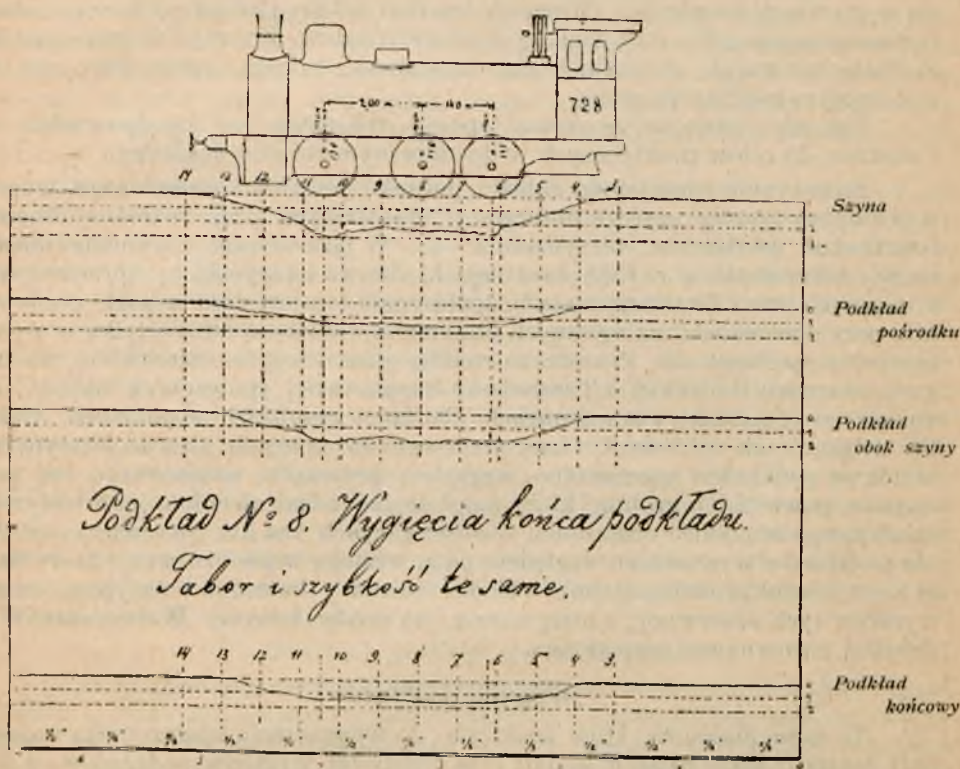 728
2,00
1,40
14 13 12 11 10 9 8 7 6 5 4 3
Szyna
Podkład
pośrodku
Podkład
obok szyny
Podkład № 8. Wygięcia końca podkładu.
Tabor i szybkość te same.
14 13 12 11 10 9 8 7 6 5 4 3
Podkład
końcowy